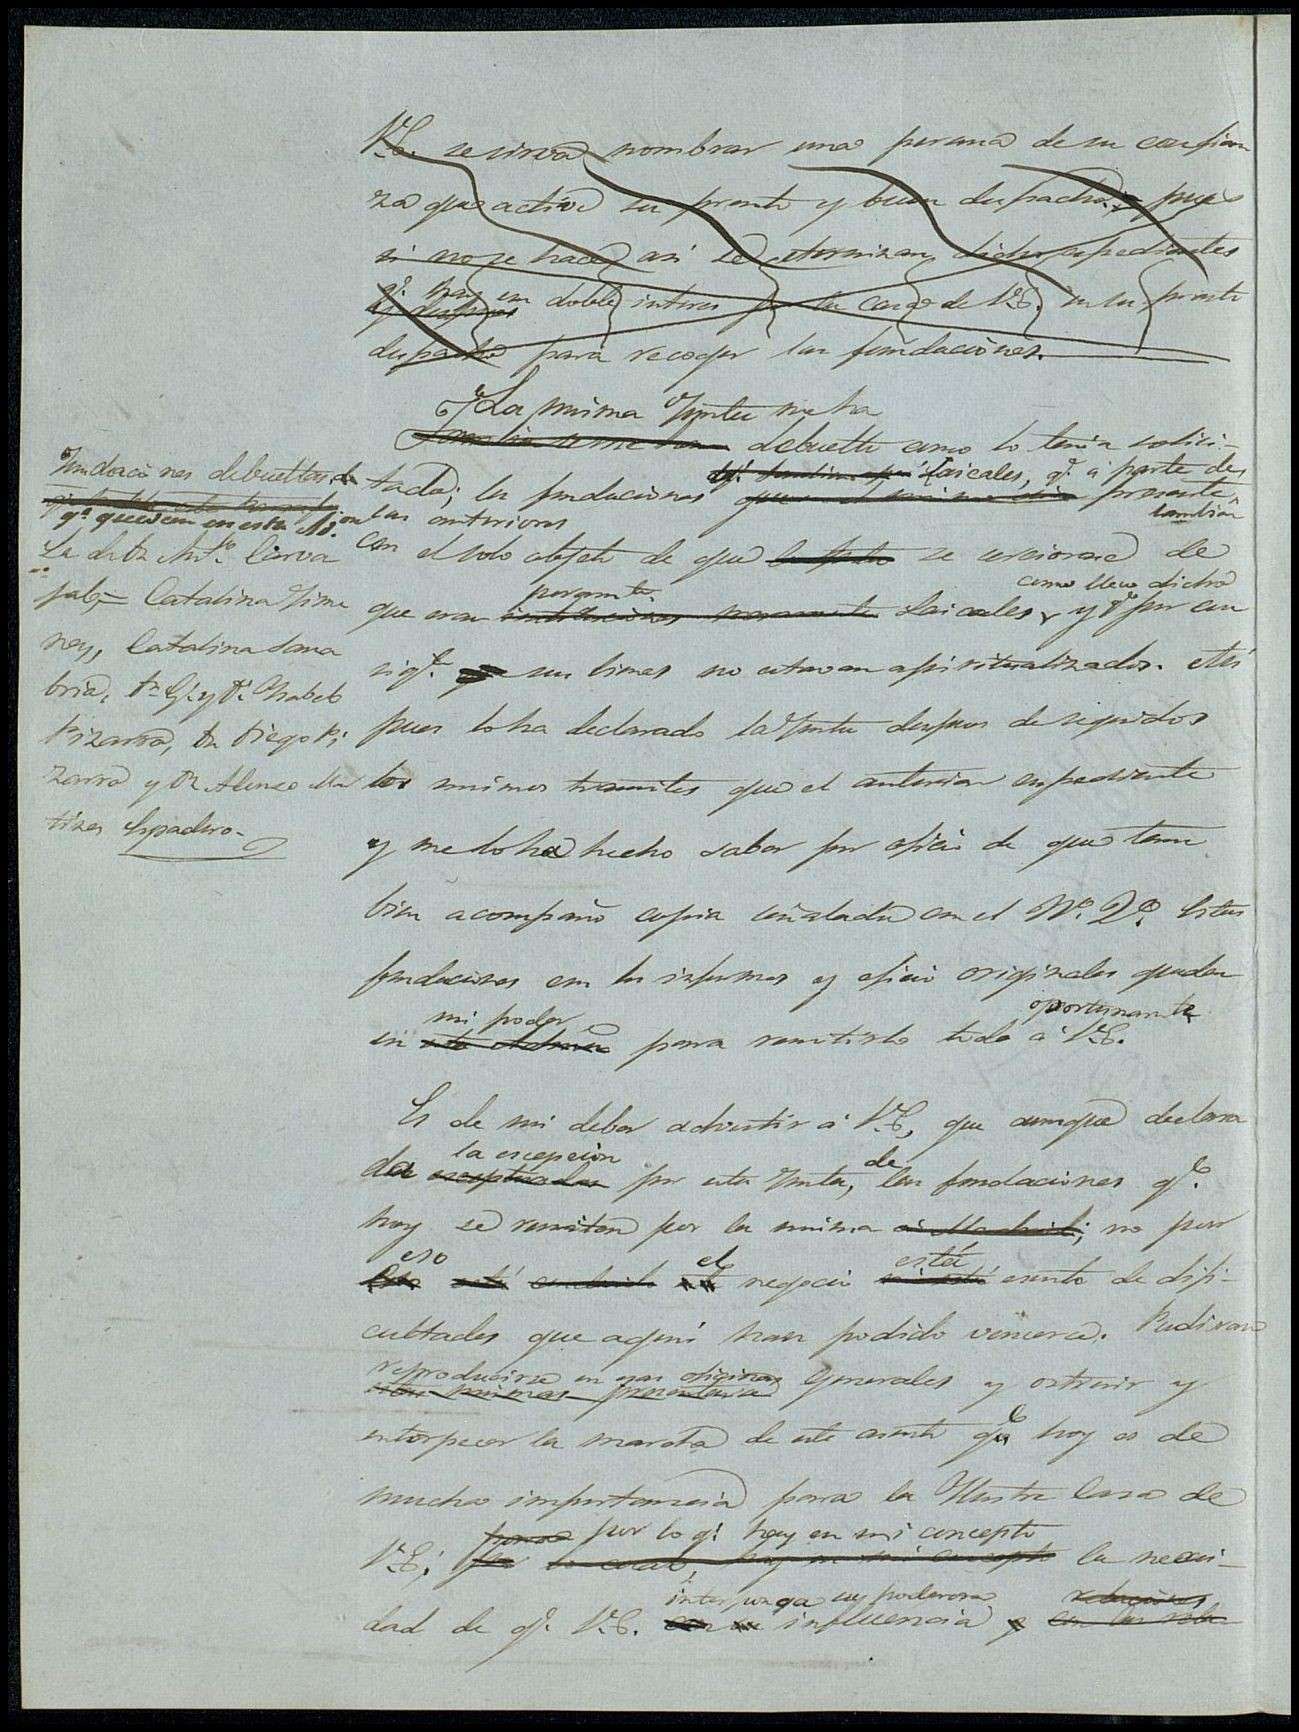 V.E. se sirva nombrar una persona de su confian
za que active su pronto y buen despacho, pues
si no se hace asi se eternizan dichos espedientes
qe. hay un doble interes por la casa de V.E. en su pronto
despacho para recoger las fundaciones.
La misma Junta me ha
debuelto como lo tenia solici-
tado; las fundaciones laicales, qe. á parte de
las anteriores presente, tambien
con el solo objeto de que se cerciorase de
que eran puramte. laicales, como lleva dicho y pr. con
sigte. sus bienes no estavan aspiritualizados. Asi
pues lo ha declarado la Junta despues de seguidos
los mismos tramites que el anterior espediente
y me lo ha hecho saber por oficio de que tam
bien acompaño copia señalada con el No. 2o. Estas
fundaciones con los informes y oficio originales quedan
en mi poder para remitirlo todo á V.E. oportunamte.
Es de mi deber advertir á V.E., que aunque declara
da la escepcion por esta Junta, de las fundaciones qe.
hoy se remiten por la misma á Madrid; no por
eso el negocio está esento de difi-
cultades que aqui han podido vencerse. Pudieran
reproducirse en esas oficinas Generales y ostruir y
entorpecer la marcha de este asunto qe. hoy es de
mucha importancia para la Ilustre Casa de
V.E.; por lo qe. hay en mi concepto la necesi-
dad de qe. V.E. interponga su poderosa influencia
Fundaciones debueltas
qe. quedan en esta
La de Dn. Anto. Carva
jal, Catalina Jime
nez, Catalina Sana
bria, Dn. G. y Da. Ysabel
Pizarro, Dn. Diego Pi
zarro y Dn. Alonso Mar
tinez Espadero.